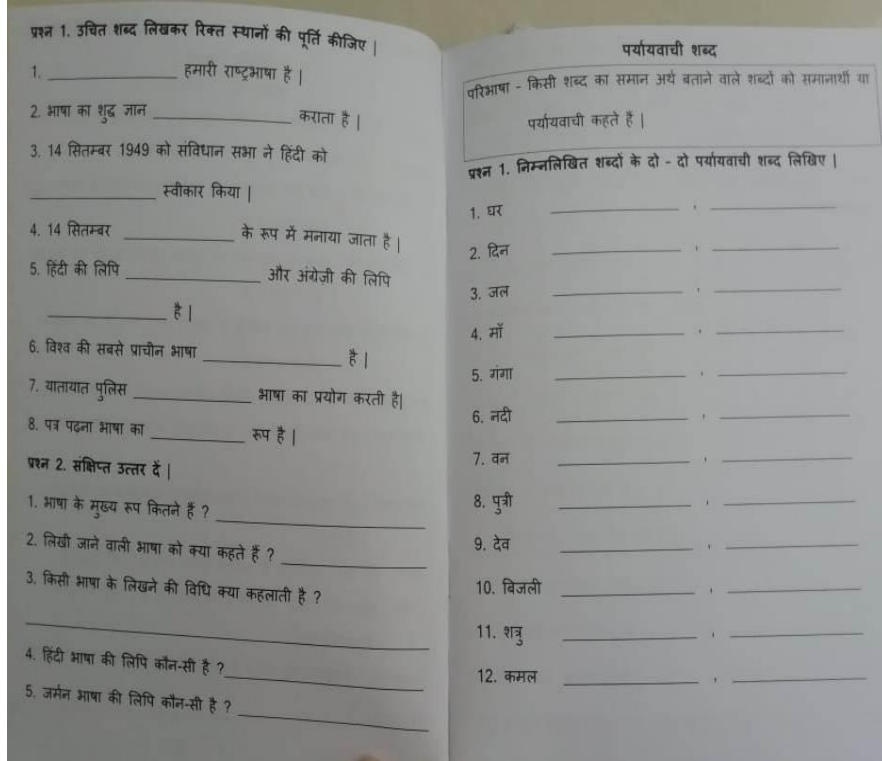 प्रश्न 1. उचित शब्द लिखकर रिक्त स्थानों की पूर्ति कीजिए |
1. ____________ हमारी राष्ट्रभाषा है |
2. भाषा का शुद्ध ज्ञान ____________ कराता है |
3. 14 सितम्बर 1949 को संविधान सभा ने हिंदी को
____________ स्वीकार किया |
4. 14 सितम्बर ____________ के रूप में मनाया जाता है |
5. हिंदी की लिपि ____________ और अंग्रेज़ी की लिपि
____________ है |
6. विश्व की सबसे प्राचीन भाषा ____________ है |
7. यातायात पुलिस ____________ भाषा का प्रयोग करती है|
8. पत्र पढ़ना भाषा का ____________ रूप है |
प्रश्न 2. संक्षिप्त उत्तर दें |
1. भाषा के मुख्य रूप कितने हैं ? ____________
2. लिखी जाने वाली भाषा को क्या कहते हैं ? ____________
3. किसी भाषा के लिखने की विधि क्या कहलाती है ?
____________
4. हिंदी भाषा की लिपि कौन-सी है ? ____________
5. जर्मन भाषा की लिपि कौन-सी है ? ____________
पर्यायवाची शब्द
परिभाषा - किसी शब्द का समान अर्थ बताने वाले शब्दों को समानार्थी या
पर्यायवाची कहते हैं |
प्रश्न 1. निम्नलिखित शब्दों के दो - दो पर्यायवाची शब्द लिखिए |
1. घर ____________ , ____________
2. दिन ____________ , ____________
3. जल ____________ , ____________
4. माँ ____________ , ____________
5. गंगा ____________ , ____________
6. नदी ____________ , ____________
7. वन ____________ , ____________
8. पुत्री ____________ , ____________
9. देव ____________ , ____________
10. बिजली ____________ , ____________
11. शत्रु ____________ , ____________
12. कमल ____________ , ____________